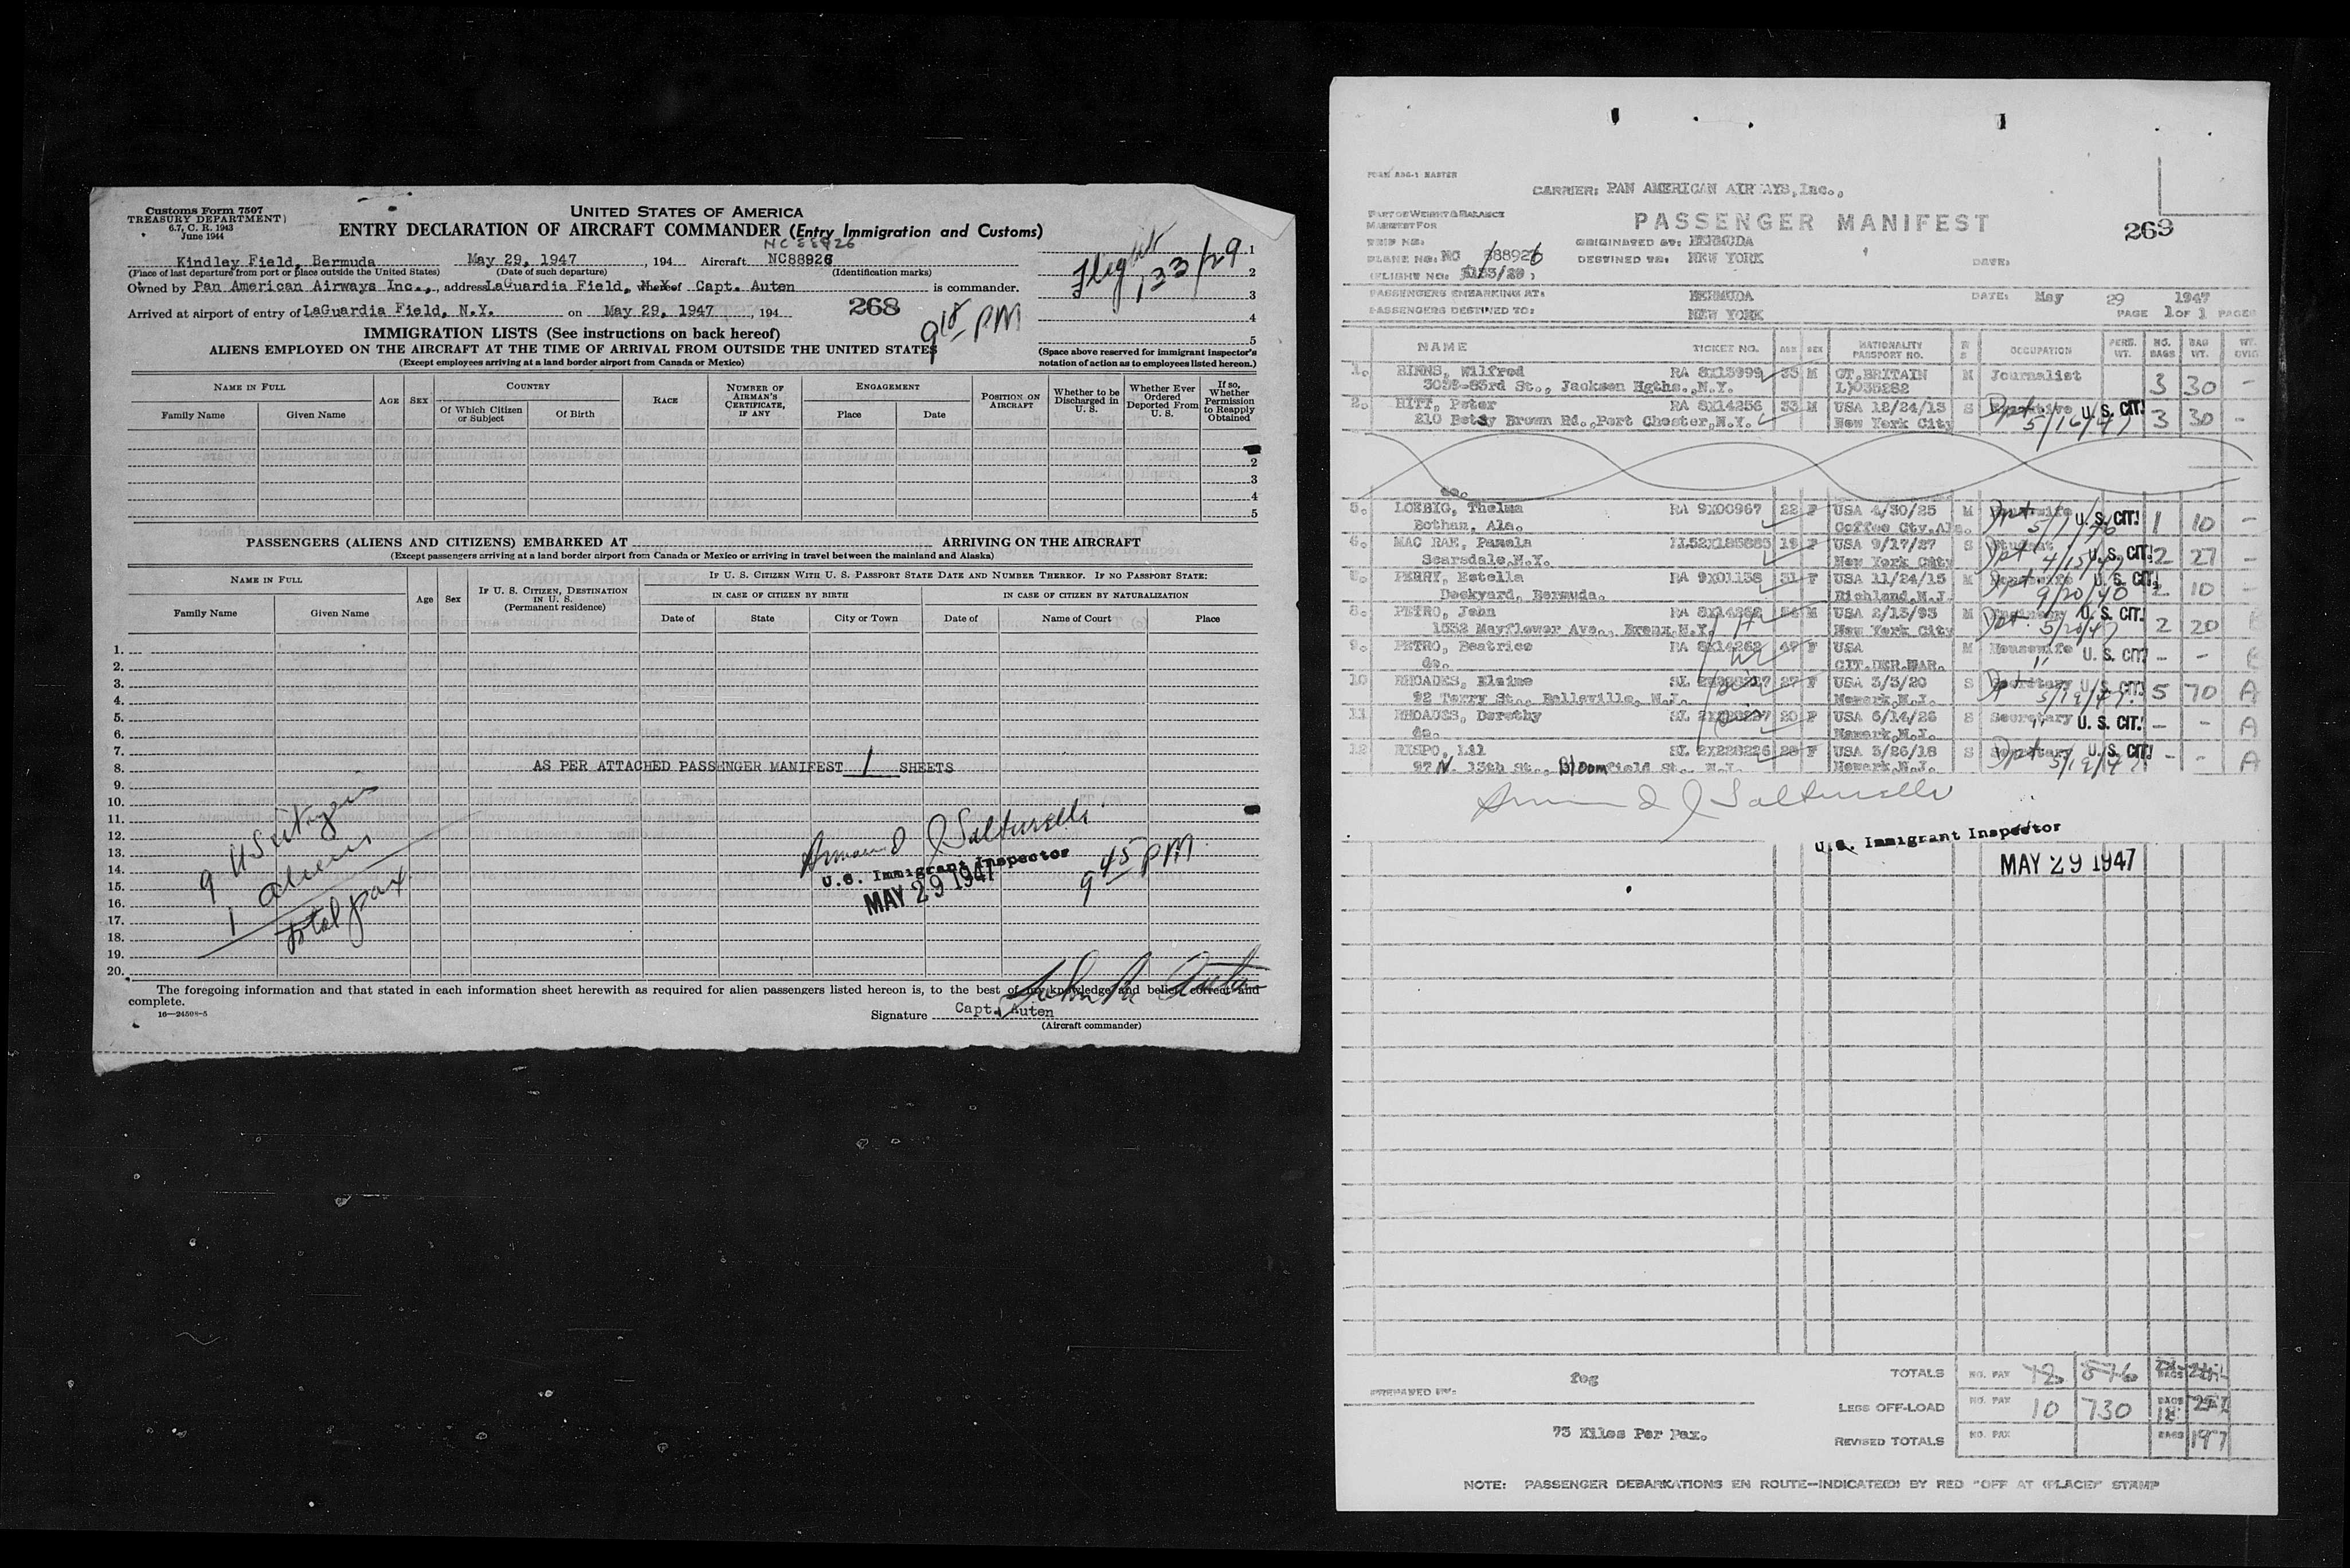 Customs Form 7507
TREASURY DEPARTMENT
6.7, C. R. 1943
June 1944
UNITED STATES OF AMERICA
ENTRY DECLARATION OF AIRCRAFT COMMANDER (Entry Immigration and Customs)
NC88926
Kindley Field, Bermuda May 29, 1947 , 194 Aircraft NC88926
(Place of last departure from port or place outside the United States) (Date of such departure) (Identification marks)
Owned by Pan American Airways Inc., , address LaGuardia Field, N.Y. whereof Capt. Auten is commander.
Arrived at airport of entry of LaGuardia Field, N.Y. on May 29, 1947 , 194
268
9 18 PM
Flight 133/29
1
2
3
4
5
IMMIGRATION LISTS (See instructions on back hereof)
ALIENS EMPLOYED ON THE AIRCRAFT AT THE TIME OF ARRIVAL FROM OUTSIDE THE UNITED STATES
(Except employees arriving at a land border airport from Canada or Mexico)
(Space above reserved for immigrant inspector's notation of action as to employees listed hereon.)
NAME IN FULL
Family Name Given Name
AGE SEX
COUNTRY
Of Which Citizen or Subject Of Birth
RACE
NUMBER OF AIRMAN'S CERTIFICATE, IF ANY
ENGAGEMENT
Place Date
POSITION ON AIRCRAFT
Whether to be Discharged in U. S.
Whether Ever Ordered Deported From U. S.
If so, Whether Permission to Reapply Obtained
2
3
4
5
PASSENGERS (ALIENS AND CITIZENS) EMBARKED AT ARRIVING ON THE AIRCRAFT
(Except passengers arriving at a land border airport from Canada or Mexico or arriving in travel between the mainland and Alaska)
NAME IN FULL
Family Name Given Name
Age Sex
IF U. S. CITIZEN, DESTINATION IN U. S. (Permanent residence)
IF U. S. CITIZEN WITH U. S. PASSPORT STATE DATE AND NUMBER THEREOF. IF NO PASSPORT STATE:
IN CASE OF CITIZEN BY BIRTH IN CASE OF CITIZEN BY NATURALIZATION
Date of State City or Town Date of Name of Court Place
1.
2.
3.
4.
5.
6.
7.
8. AS PER ATTACHED PASSENGER MANIFEST 1 SHEETS
9.
10.
11.
12.
13.
14.
15.
16.
17.
18.
19.
20.
9 US citizen
1 aliens
total pax
Armand J Salturelli
U.S. Immigrant Inspector
MAY 29 1947
9 45 PM
The foregoing information and that stated in each information sheet herewith as required for alien passengers listed hereon is, to the best of my knowledge and belief, correct and
complete.
16—24598-5
Signature Capt. Auten
(Aircraft commander)
FORM ADG-1 MASTER
CARRIER: PAN AMERICAN AIRWAYS, Inc.,
PART OF WEIGHT & BALANCE
MANIFEST FOR
PASSENGER MANIFEST
269
TRIP NO:
PLANE NO: NC 88926
(FLIGHT NO: 133/29)
ORIGINATED AT: BERMUDA
DESTINED TO: NEW YORK
DATE:
PASSENGERS EMBARKING AT: BERMUDA DATE: May 29 1947
PASSENGERS DESTINED TO: NEW YORK PAGE 1 OF 1 PAGES
NAME TICKET NO. AGE SEX NATIONALITY PASSPORT NO. M S OCCUPATION PERS. WT. NO. BAGS BAG WT.
1. BINNS, Wilfred RA 8X13999 35 M GT.BRITAIN M Journalist 3 30 -
83rd St., Jackson Hgths., N.Y.
2. HITT, Peter RA 8X14256 33 M USA 12/24/13 S U. S. CIT! 3 30 -
210 Betsy Brown Rd., Port Chester, N.Y. New York City Dpt 5/16/47
do.
5. LOEBIG, Thelma RA 9X00967 22 F USA 4/30/25 M Housewife U. S. CIT! 1 10 -
Dothan, Ala. Coffee Cty, Ala.
6. MAC RAE, Pamela 19 F USA 9/17/27 S Student U. S. CIT! 2 27 -
Scarsdale, N.Y. New York City
PERRY, Estella RA 9X01138 31 F USA 11/24/15 M Housewife U. S. CIT! 10 -
Dockyard, Bermuda. Richland, N.J. Dpt 9/20/40
8. PETRO, John RA 8X14262 54 M USA 2/13/93 M U. S. CIT! 2 20
1532 Mayflower Ave., Bronx, N.Y. New York City Dpt 5/20/47
9. PETRO, Beatrice RA 8X14262 47 F USA M Housewife U. S. CIT! - -
do. CIT.DER.MAR. "
10 RHOADES, Elaine 27 F USA 3/3/20 S Secretary U. S. CIT! 5 70 A
22 Terry St., Belleville, N.J. Newark, N.J. 5/19/47
11 RHOADES, Dorothy 20 F USA 6/14/26 S Secretary U. S. CIT! - - A
do. Newark, N.J. "
12 RISPO, Lil SL 2X228226 28 F USA 3/26/18 S Secretary U. S. CIT! - - A
97 N. 13th St., Bloomfield St., N.J. Newark, N.J. Dpt 5/19/47
Armand J Salturelli
U.S. Immigrant Inspector
MAY 29 1947
TOTALS NO. PAX 12 876 BAGS
PREPARED BY: feg
LESS OFF-LOAD NO. PAX 10 730 BAGS 18
73 Kilos Per Pax.
REVISED TOTALS NO. PAX BAGS 197
NOTE: PASSENGER DEBARKATIONS EN ROUTE—INDICATE(D) BY RED "OFF AT (PLACE)" STAMP